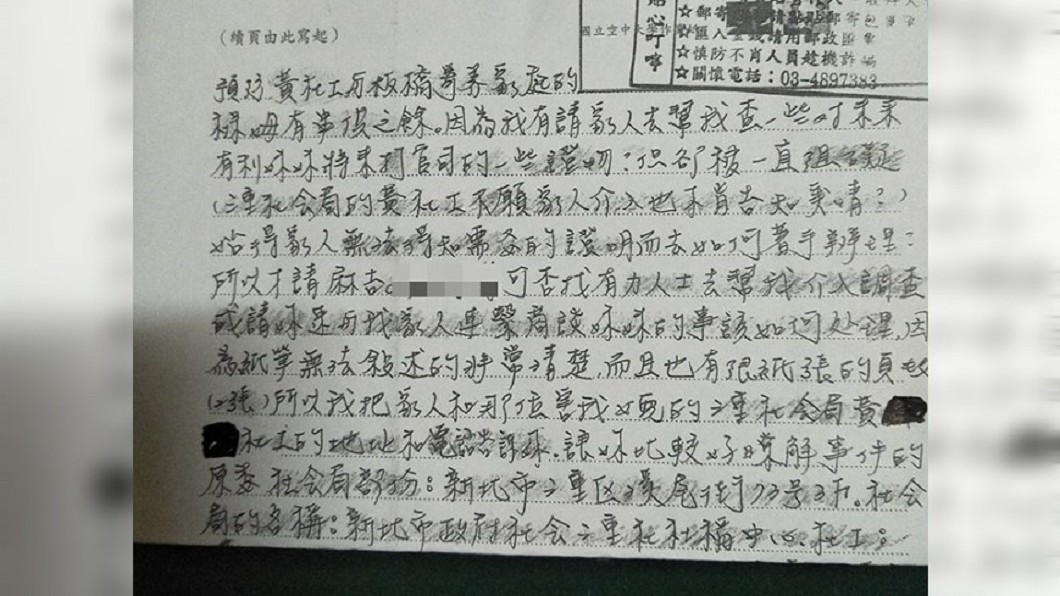 (續頁由此寫起)
貼心叮嚀
☆郵寄
☆匯入 請用郵政匯
☆慎防不肖人員趁機詐騙
☆關懷電話：03-4897383
國立空中大學
預防黃社工与板橋寄养家庭的
保姆有串供之餘。因為我有請家人去幫我查一些对未来
有利妹妹將來打官司的一些證物：但卻被一直阻疑
(三重社会局的黃社工不願家人介入也未肯告知実情：)
始得家人無法得知需要的證明而去如何著手辦理：
所以才請麻吉 可否找有力人士去幫我介入調查
或請 与我家人連繫商談妹妹的事該如何处理，因
為紙筆無法敍述的非常清楚，而且也有限紙張的頁數
(2張)所以我把家人和那位害我女兒的三重社会局黃
社工的地址和電話告訴 ，讓 比較好瞭解事件的
原委 社会局部份：新北市三重区溪尾街73号3F. 社会
局的名稱：新北市政府社会三重社 福中心社工；